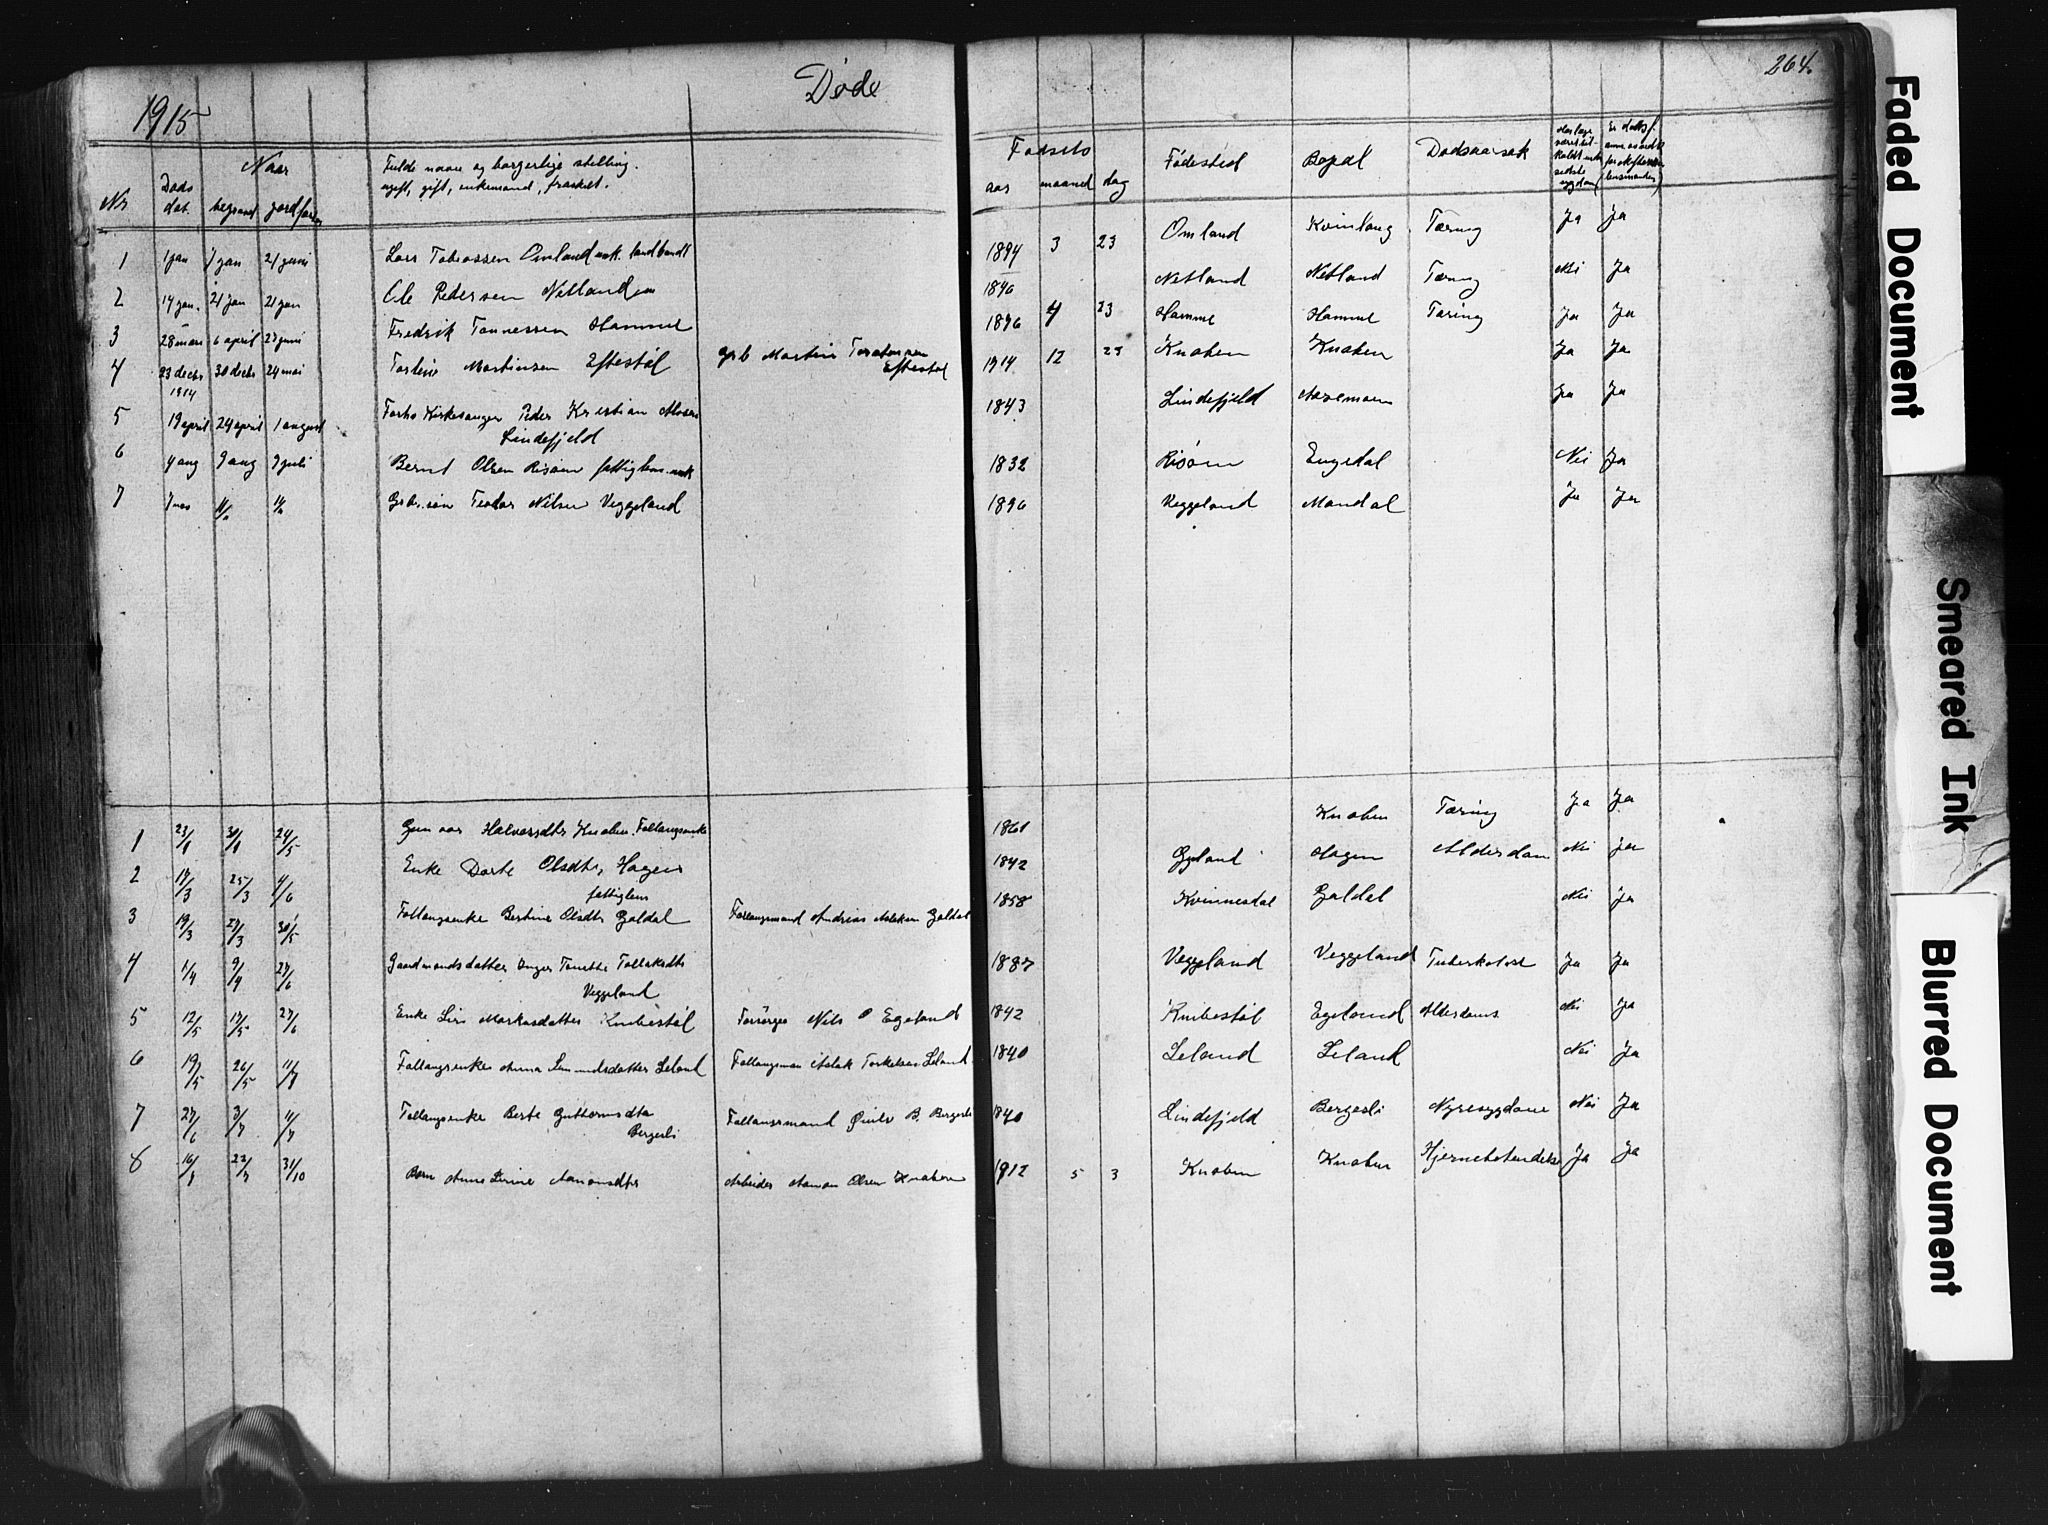 1915
Døde
264.
Nr
Døds dat.
Naar
begravet
jordfæstet
Fulde navn og borgerlige stilling.
ugift, gift, enkemand, fraskilt.
Fødsels
aar maaned dag
Fødested
Bopæl
Dødsaarsak
1 1 jan 7 jan 21 juni Lars Tobiassen Omland uok. landbandt 1894 3 23 Omland Kvinlaug Tæring Ja Ja
2 14 jan. 21 jan 21 jan Ole Pedersen Netland 1840 Netland Netland Tæring Nei Ja
3 28 mars 6 april 27 juni Fredrik Tønnessen Hamme 1896 4 23 Hamme Hamme Tæring Ja Ja
4 23 decbr 30 decbr 24 mai Torleiv Martinsen Eftestøl Grb Martin 1914 12 Knaben Knaben Ja Ja
1914 Eftestøl
5 19 april 24 april 1 august Forhv Kirkesanger Peder Kristian 1843 Lindefjeld Ja Ja
Lindefjeld
6 4 aug 9 aug 9 juli Bernt Olsen Risøen 1832 Risøen Engedal Nei Ja
7 7 nov 11/11 14/11 Grbr. søn Teodor Nilsen Veggeland 1896 Veggeland Mandal Ja Ja
1 24/5 Gunvor Halvorsdtr Knaben. Føllaugsenke 1861 Knaben Tæring Ja Ja
2 17/3 25/3 4/6 Enke Dorte Olsdtr, Hagen 1842 Gyland Hagen Alderdom Nei Ja
fattiglem
3 19/3 27/3 30/5 Føllaugsenke Bertine Olsdtr Galdal Føllaugsmand Andreas Aslaksen Galdal 1858 Kvinnesdal Galdal Nei Ja
4 1/4 9/4 27/6 Gaardmandsdatter Inger Tonette Tollaksdtr 1887 Veggeland Veggeland Tuberkolose Ja Ja
Veggeland
5 12/5 17/5 27/6 Enke Siri Markusdatter Knibestøl Forsørges Nils O Egeland 1842 Knibestøl Egeland Alderdoms Nei Ja
6 19/5 26/5 Føllaugsenke Anna Leland Føllaugsman Aslak Torkelsen Leland 1840 Leland Leland Nei Ja
7 27/6 3/7 11/7 Føllaugsenke Berte Guttormsdtr Føllaugsmand B. Bergesli 1840 Lindefjeld Bergesli Nyresygdom Nei Ja
Bergesli
8 16/8 31/10 Barn Anne Aanonsdtr Arbeider Aanon Olsen Knaben 1912 5 3 Knaben Knaben Hjernebetendelse Ja Ja
Faded Document
Smeared Ink
Blurred Document